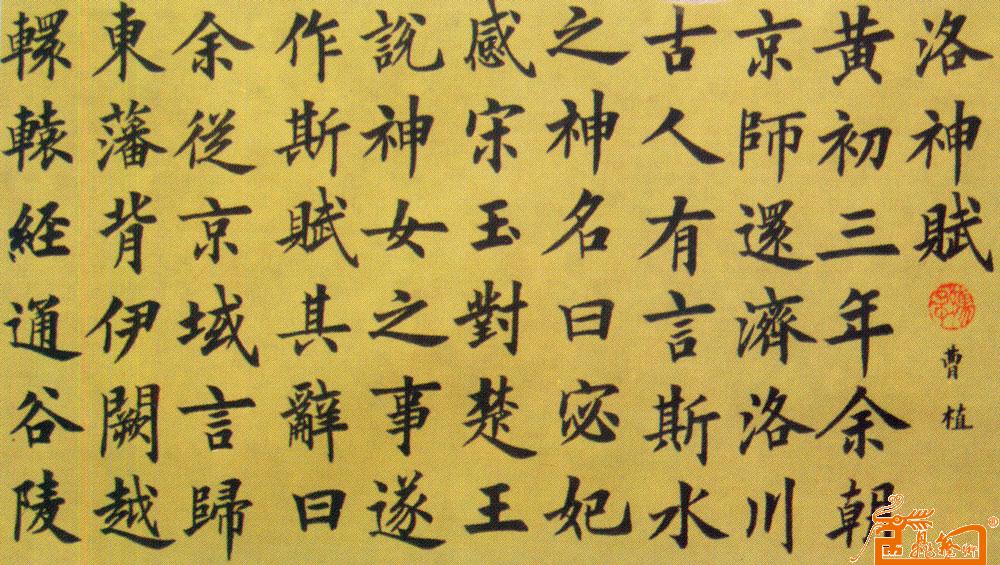 洛神賦
曹植
黃初三年余朝
京師還濟洛川
古人有言斯水
之神名曰宓妃
感宋玉對楚王
說神女之事遂
作斯賦其辭曰
余從京域言歸
東藩背伊闕越
轘轅経通谷陵